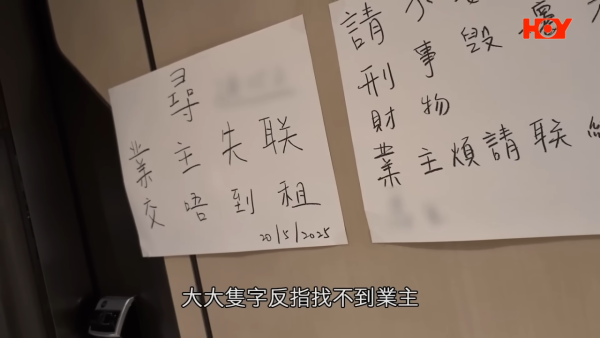 HOY
尋
業主失联
交唔到租
20/5/2025
請不
刑事毀
財物
業主煩請联絡
大大隻字反指找不到業主